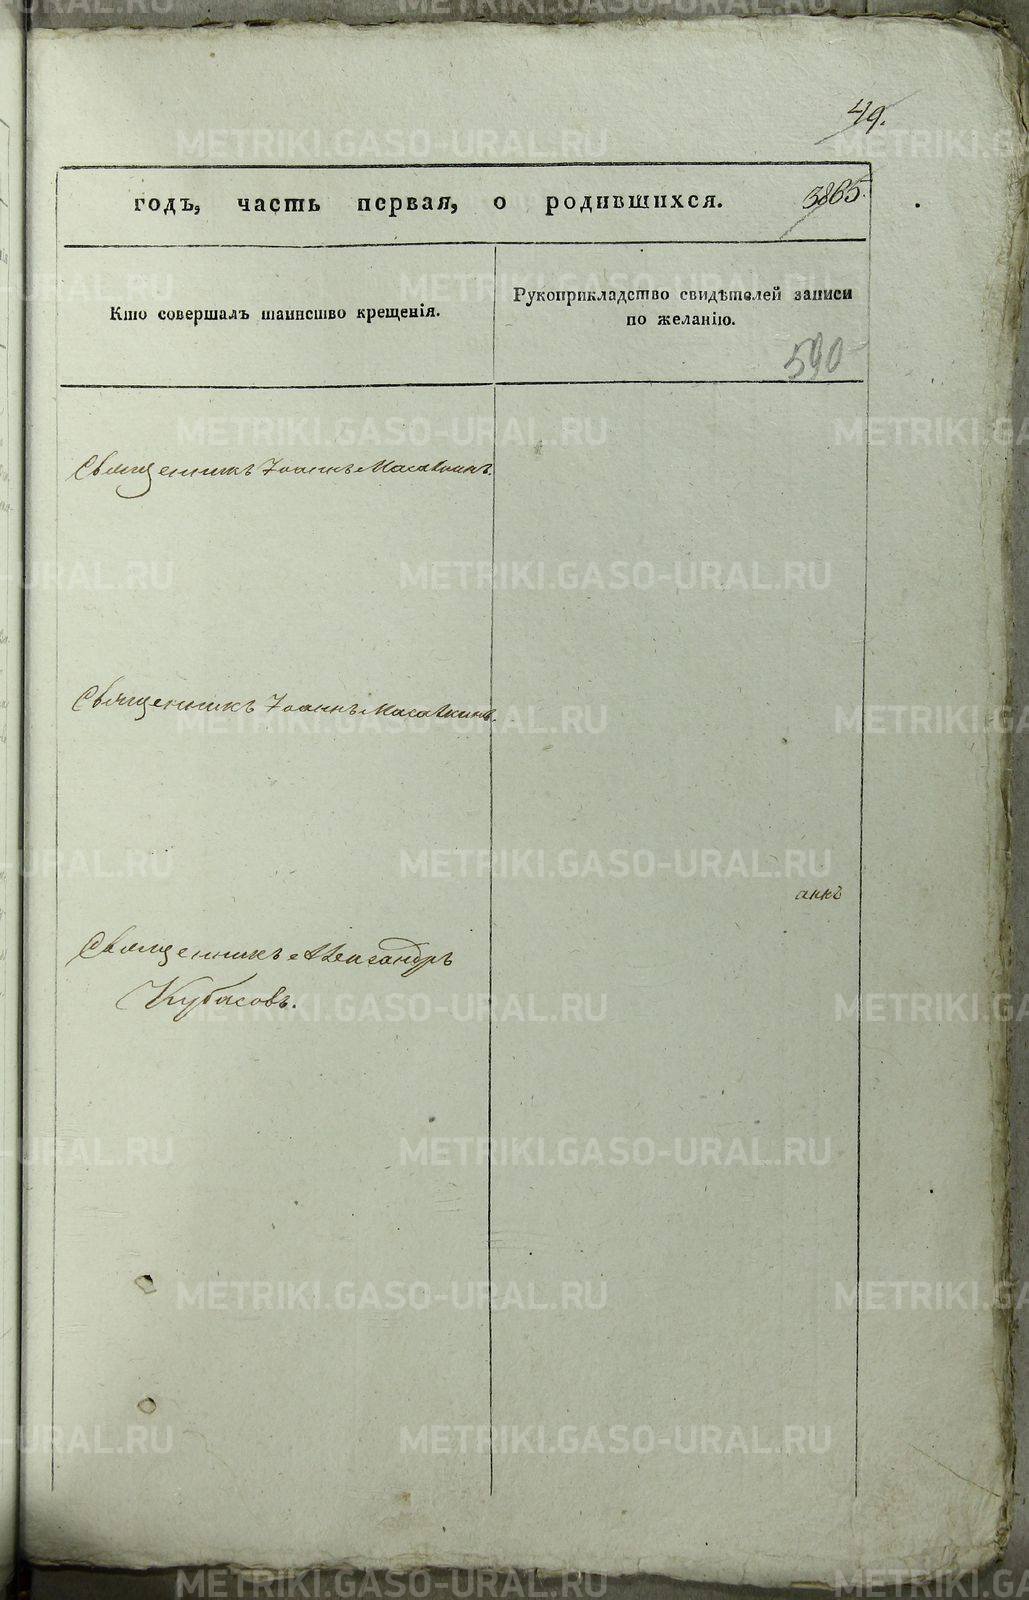 49.
годъ, часть первая, о родившихся.
3865.
Кто совершалъ таинство крещенія.
Рукоприкладство свидѣтелей записи
по желанію.
590
Священникъ Іоаннъ
Священникъ Іоаннъ
Священникъ Александръ
Кубасовъ.
METRIKI.GASO-URAL.RU